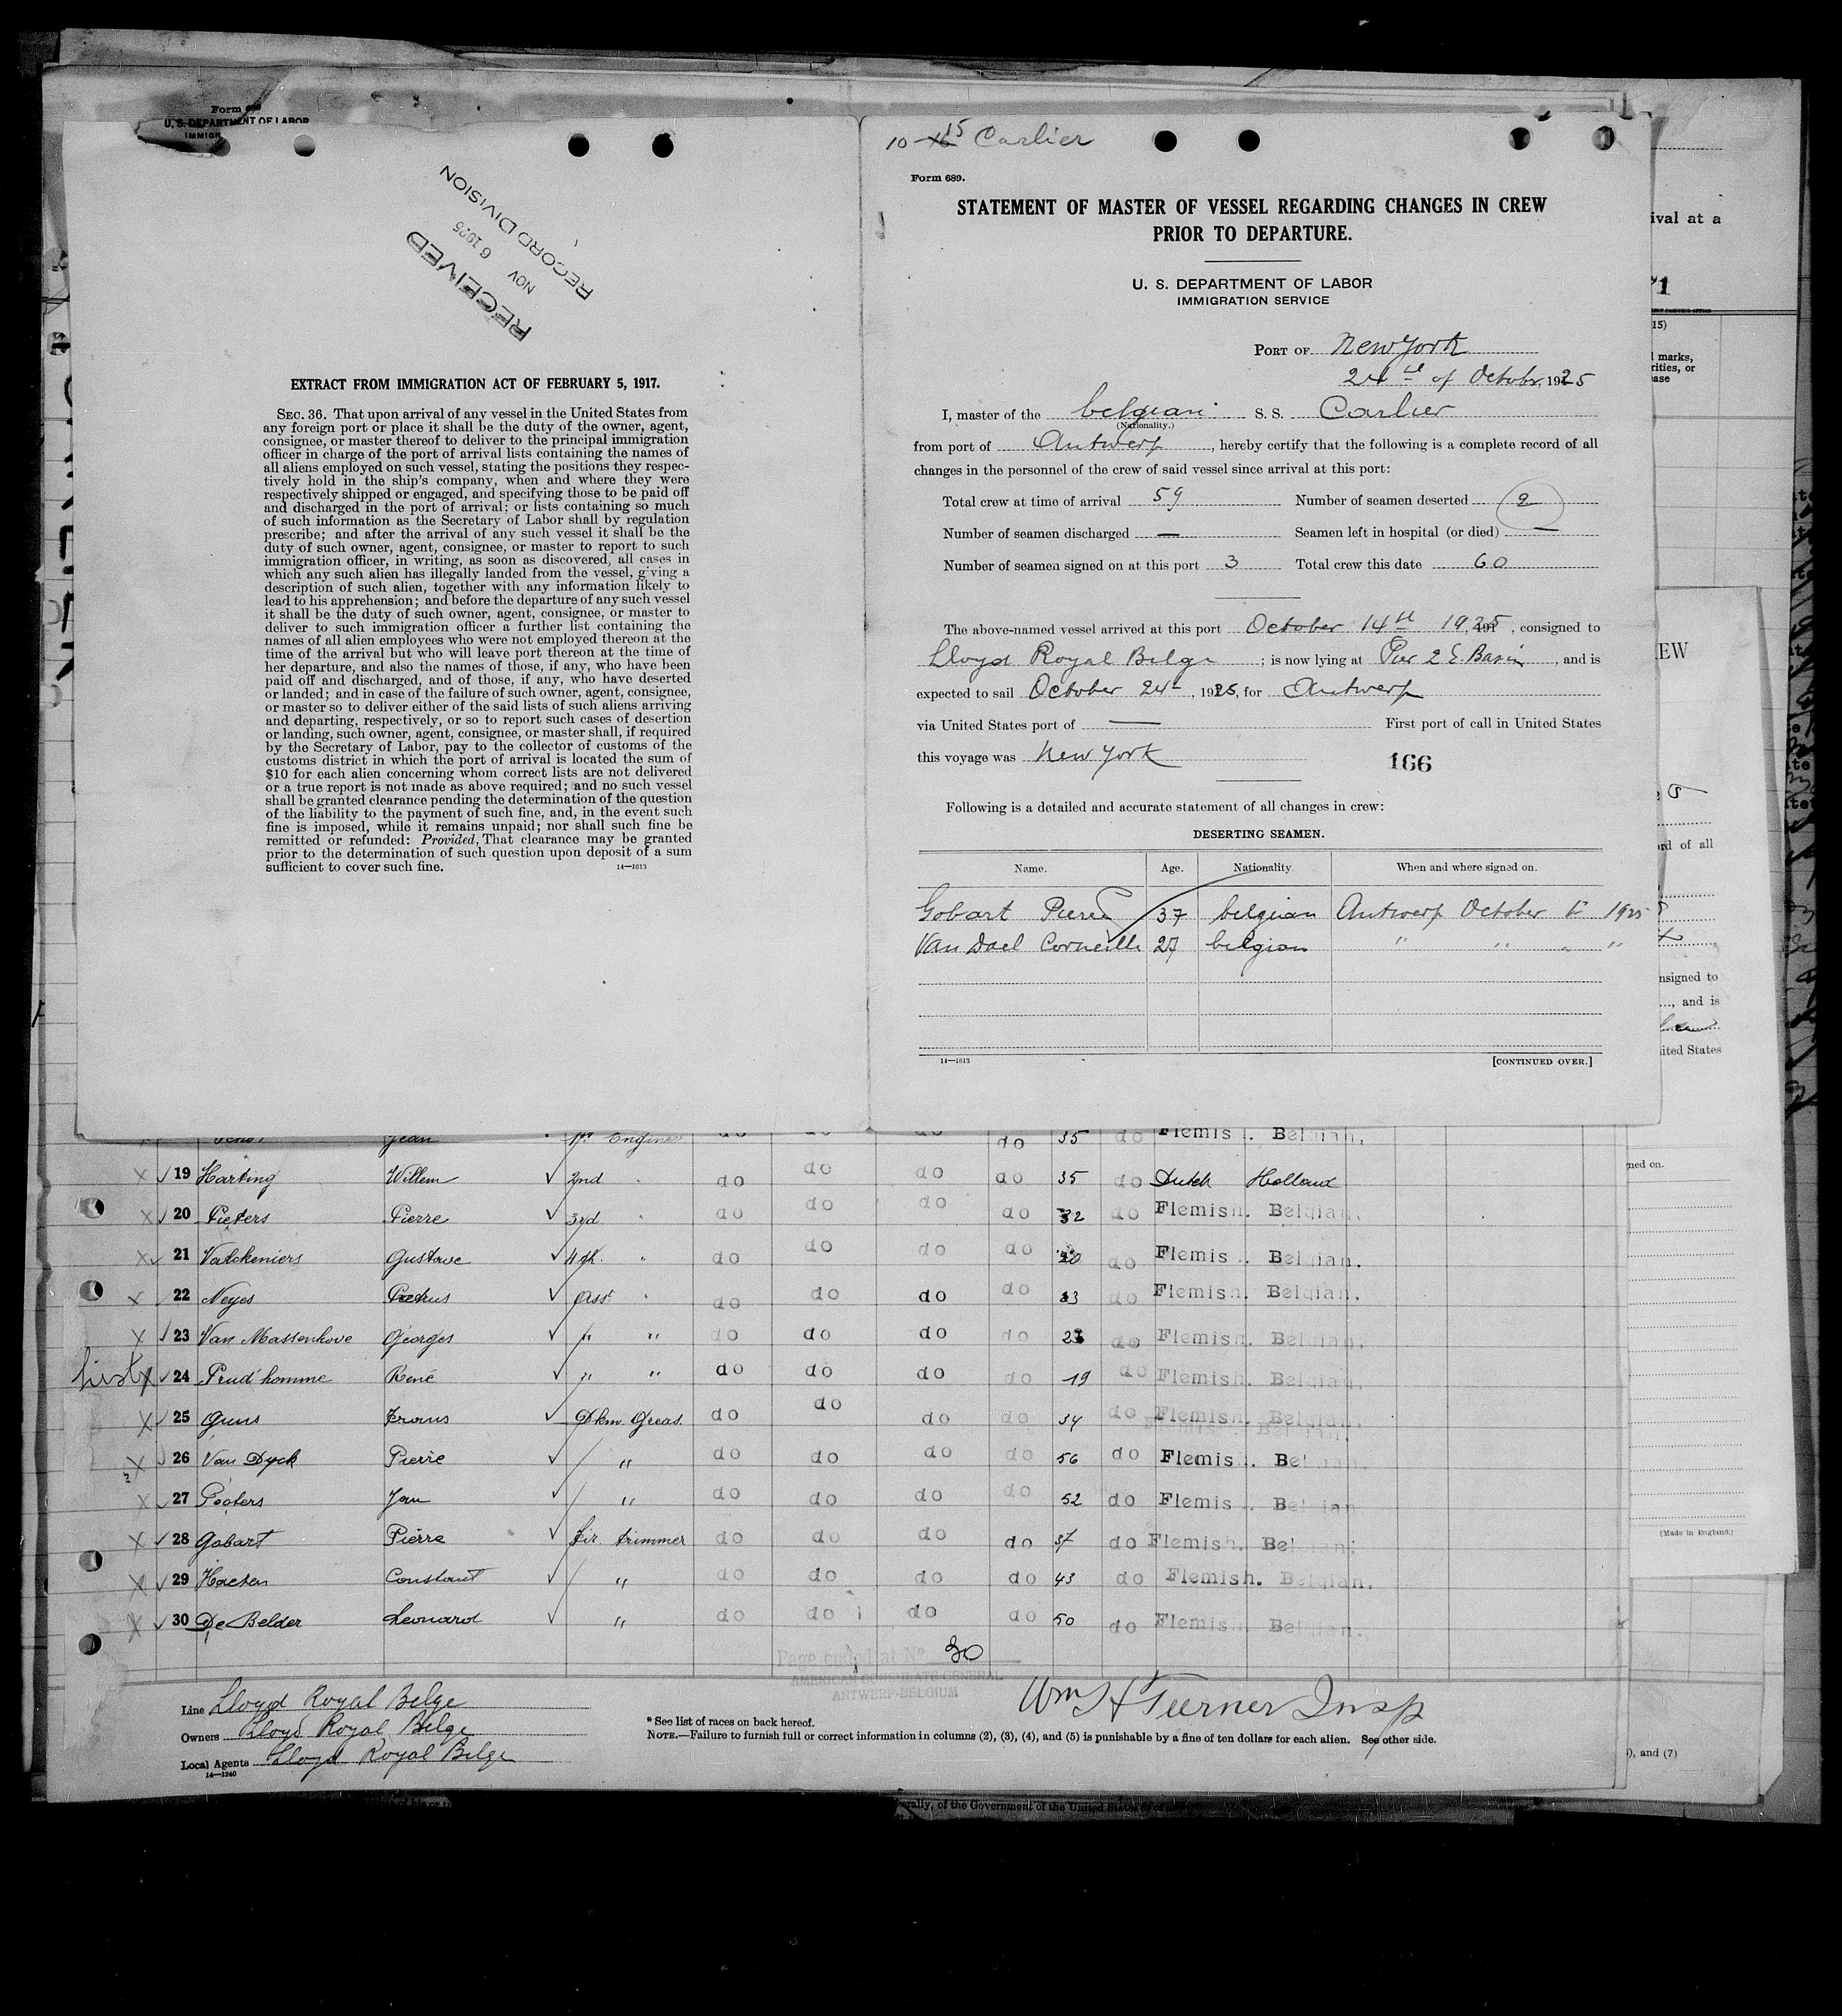 Form 689
U. S. DEPARTMENT OF LABOR
IMMIGR
RECEIVED
NOV 6 1925
RECORD DIVISION
EXTRACT FROM IMMIGRATION ACT OF FEBRUARY 5, 1917.
SEC. 36. That upon arrival of any vessel in the United States from
any foreign port or place it shall be the duty of the owner, agent,
consignee, or master thereof to deliver to the principal immigration
officer in charge of the port of arrival lists containing the names of
all aliens employed on such vessel, stating the positions they respec-
tively hold in the ship's company, when and where they were
respectively shipped or engaged, and specifying those to be paid off
and discharged in the port of arrival; or lists containing so much
of such information as the Secretary of Labor shall by regulation
prescribe; and after the arrival of any such vessel it shall be the
duty of such owner, agent, consignee, or master to report to such
immigration officer, in writing, as soon as discovered, all cases in
which any such alien has illegally landed from the vessel, giving a
description of such alien, together with any information likely to
lead to his apprehension; and before the departure of any such vessel
it shall be the duty of such owner, agent, consignee, or master to
deliver to such immigration officer a further list containing the
names of all alien employees who were not employed thereon at the
time of the arrival but who will leave port thereon at the time of
her departure, and also the names of those, if any, who have been
paid off and discharged, and of those, if any, who have deserted
or landed; and in case of the failure of such owner, agent, consignee,
or master so to deliver either of the said lists of such aliens arriving
and departing, respectively, or so to report such cases of desertion
or landing, such owner, agent, consignee, or master shall, if required
by the Secretary of Labor, pay to the collector of customs of the
customs district in which the port of arrival is located the sum of
$10 for each alien concerning whom correct lists are not delivered
or a true report is not made as above required; and no such vessel
shall be granted clearance pending the determination of the question
of the liability to the payment of such fine, and, in the event such
fine is imposed, while it remains unpaid; nor shall such fine be
remitted or refunded: Provided, That clearance may be granted
prior to the determination of such question upon deposit of a sum
sufficient to cover such fine. 14—1613
10-15 Carlier
Form 689.
STATEMENT OF MASTER OF VESSEL REGARDING CHANGES IN CREW
PRIOR TO DEPARTURE.
U. S. DEPARTMENT OF LABOR
IMMIGRATION SERVICE
PORT OF New York
24th of October, 1925
I, master of the belgian S. S. Carlier
(Nationality.)
from port of Antwerp, hereby certify that the following is a complete record of all
changes in the personnel of the crew of said vessel since arrival at this port:
Total crew at time of arrival 59 Number of seamen deserted 2
Number of seamen discharged — Seamen left in hospital (or died) —
Number of seamen signed on at this port 3 Total crew this date 60
The above-named vessel arrived at this port October 14th 1925, consigned to
Lloyd Royal Belge; is now lying at Pier 2 E. Basin, and is
expected to sail October 24th, 1925, for Antwerp
via United States port of — First port of call in United States
this voyage was New York
166
Following is a detailed and accurate statement of all changes in crew:
DESERTING SEAMEN.
Name. Age. Nationality When and where signed on.
Gobart Pierre 37 belgian Antwerp October 1925
Van Dael Corneille 27 belgian " " " "
14—1613 [CONTINUED OVER.]
Jean 1st Engineer do do do do 35 do Flemis . Belgian.
19 Harting Willem 2nd " do do do do 35 do Dutch Holland
20 Pieters Pierre 3rd " do do do do 32 do Flemish. Belgian.
21 Valckeniers Gustave 4th " do do do do 20 do Flemis . Belgian.
22 Neyes Petrus Asst " do do do do 33 do Flemish. Belgian.
23 Van Massenhove Georges " " do do do do 23 do Flemish. Belgian.
24 Prud'homme René " " do do do do 19 do Flemish. Belgian.
25 Guns Frans Dkm. Greas. do do do do 34 do Flemish. Belgian.
26 Van Dyck Pierre " do do do do 56 do Flemis . Belgian
27 Pooters Jan " do do do do 52 do Flemis . Belgian
28 Gobart Pierre Fir. trimmer do do do do 37 do Flemish. Belgian.
29 Haeten Constant " do do do do 43 do Flemish. Belgian.
30 De Belder Leonard " do do do do 50 do Flemish. Belgian.
Page ended at No 30
AMERICAN CONSULATE GENERAL
ANTWERP-BELGIUM
Wm H Turner Insp
Line Lloyd Royal Belge
Owners Lloyd Royal Belge
Local Agents Lloyd Royal Belge
14—1240
* See list of races on back hereof.
NOTE.—Failure to furnish full or correct information in columns (2), (3), (4), and (5) is punishable by a fine of ten dollars for each alien. See other side.
ival at a
71
15)
marks,
rities, or
ase
EW
ord of all
nsigned to
, and is
ited States
ned on.
(Made in England.)
), and (7)
erally, of the Government of the United States